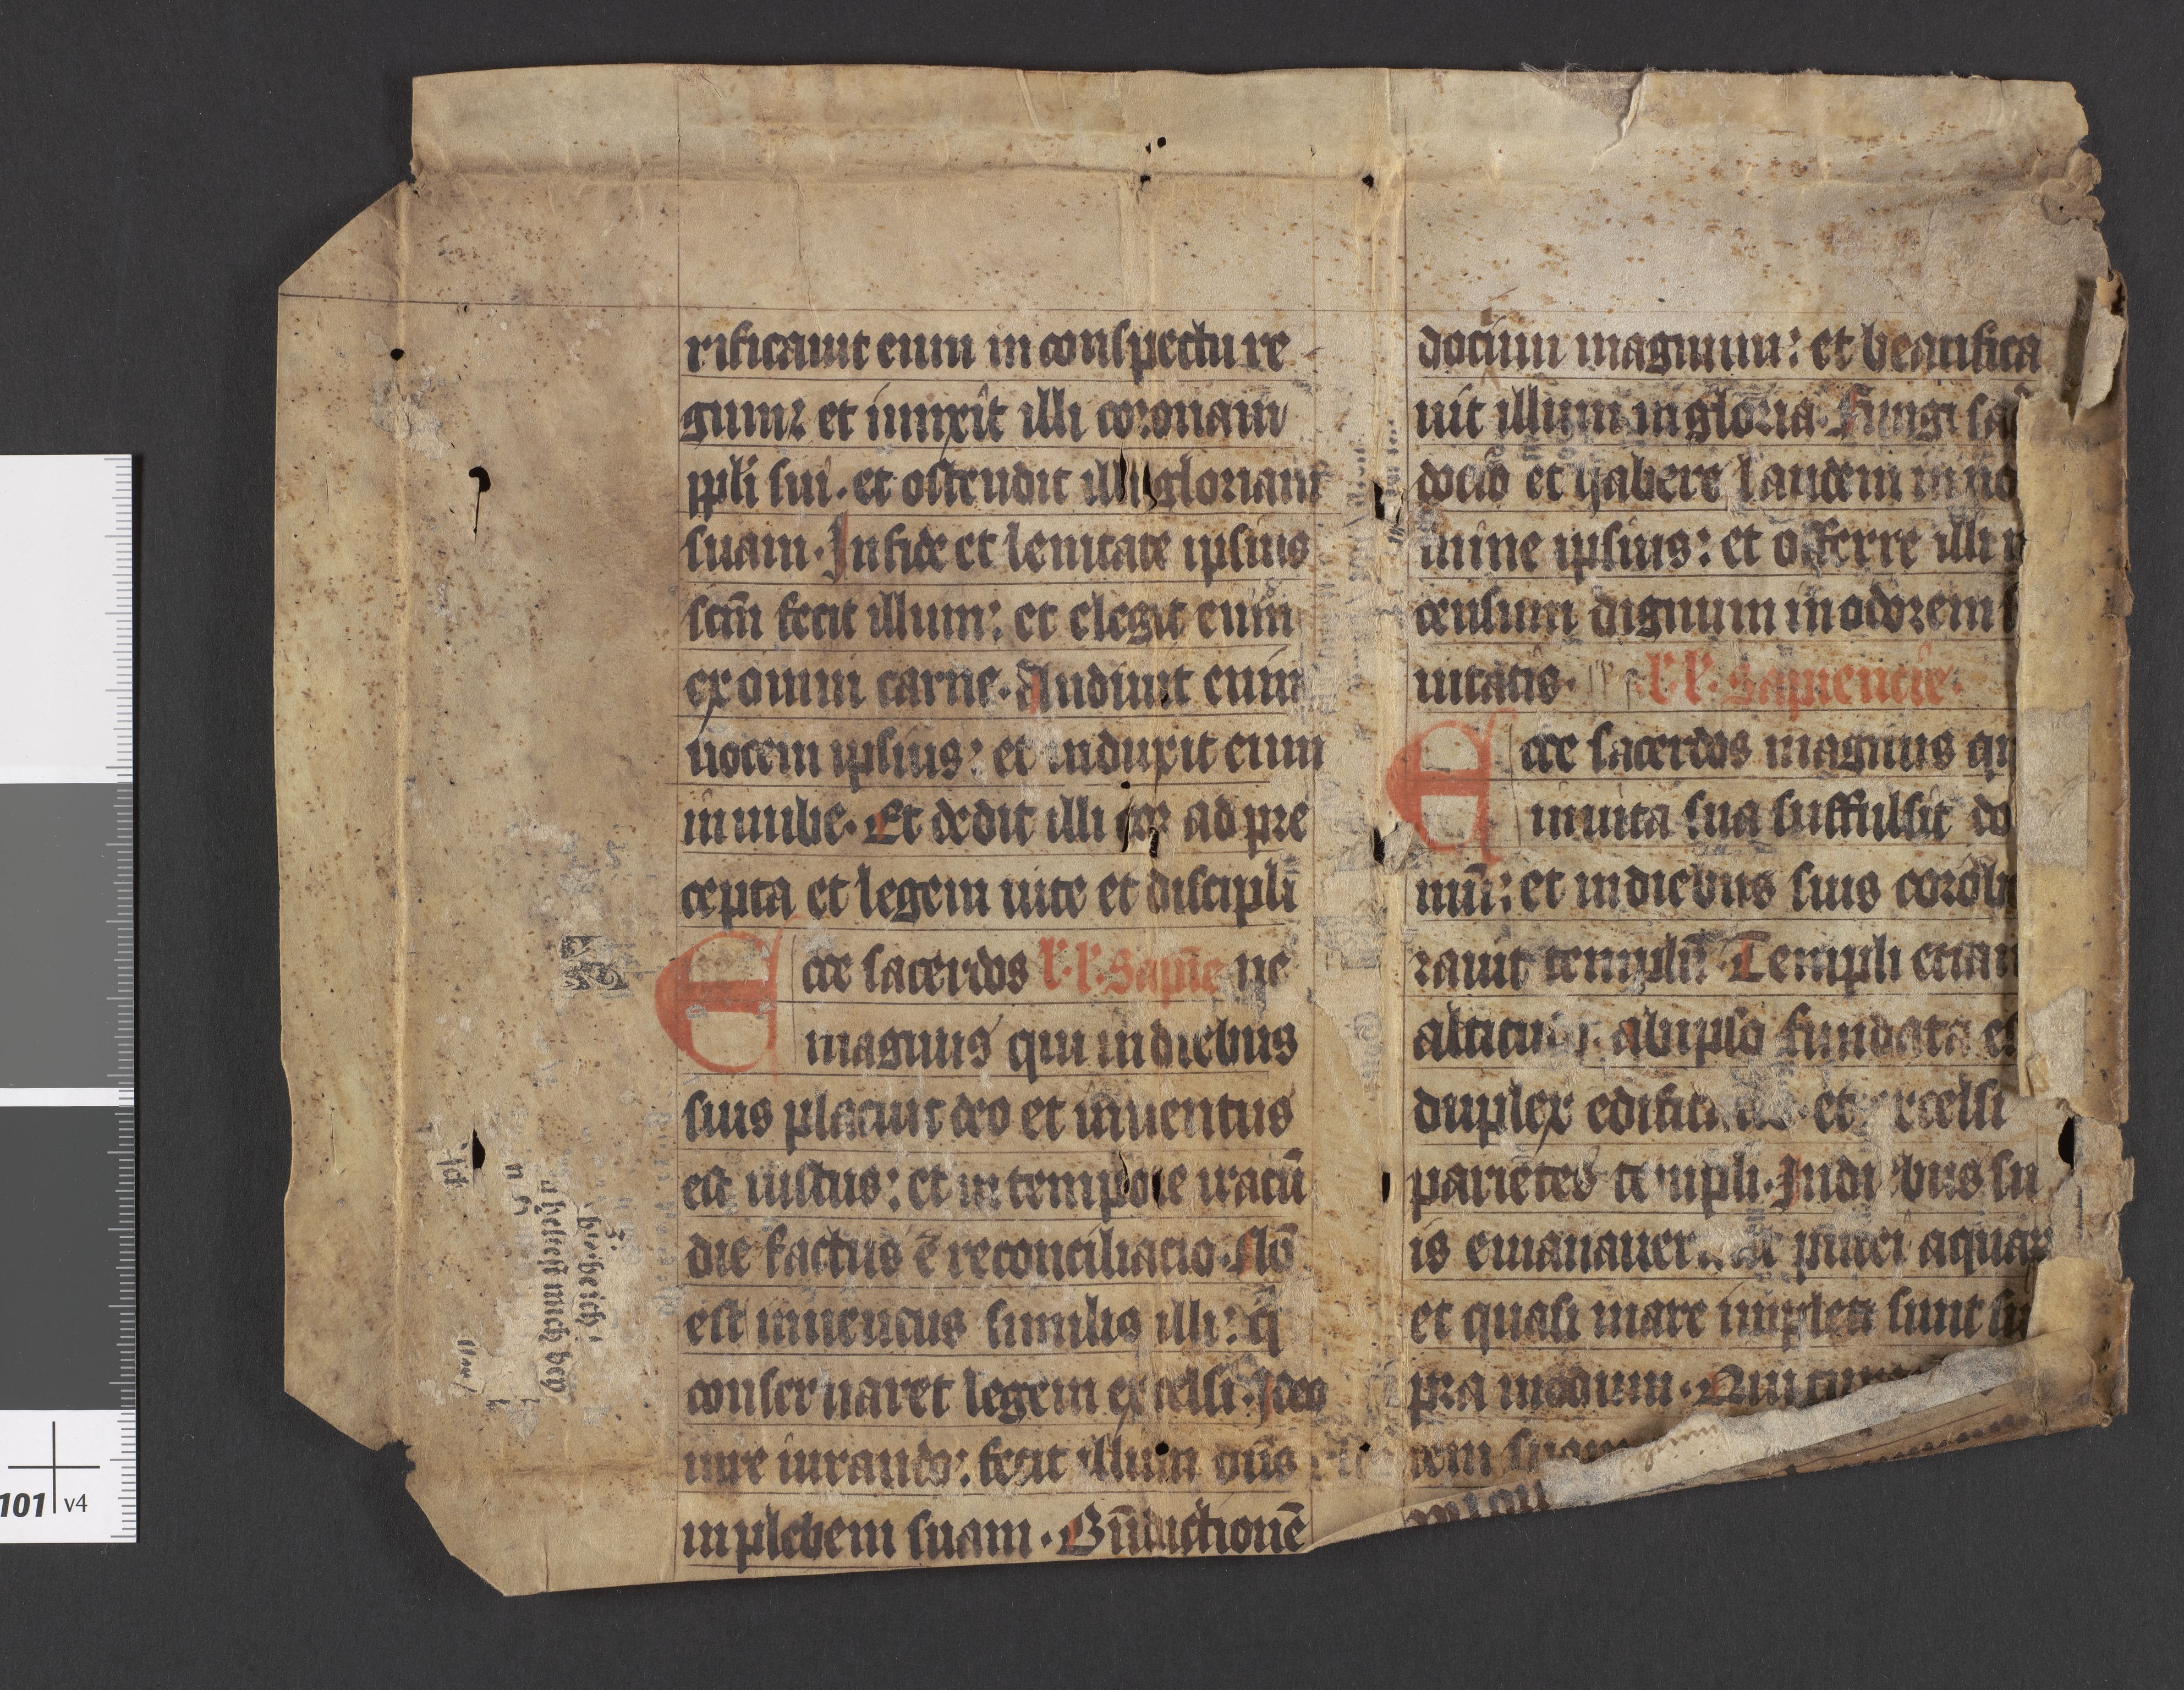 rificauit eum in conspectu re
gum: et iunxit illi coronam
ppli sui. et ostendit illi gloriam
suam. In fide et lenitate ipsius
scm̄ fecit illum: et elegit eum
ex omni carne. Audiuit enim
uocem ipsius: et induxit eum
in nube. Et dedit illi cor ad pre
cepta et legem uite et discipli
Ecce sacerdos l. l. Sapīe ne
magnus qui in diebus
suis placuit deo et inuentus
est iustus: et in tempore iracū
die factus ē reconciliacio. Nō
est inuentus similis illi: q̄
conseruaret legem excelsi. Ideo
iure iurando: fecit illum dn̄s
in plebem suam. Bn̄dictionē
docium magnum: et beatifica
uit illum in gloria. Fungi sac̄
docio et habere laudem in no
mine ipsius: et offerre illi
censum dignum in odorem
uitatis. l. l. Sapiencie.
Ecce sacerdos magnus qu
in uita sua suffulsit do
mū: et in diebus suis corobo
rauit templū. Templi etiam
altitudo ab ipso fundata es
duplex edificatio et excelsi
parietes templi. In diebus su
is emanauerunt putei aquar
et quasi mare impleti sunt su
pra modum. Qui cura
tem suam
bey heich
helffest mich bey
sch